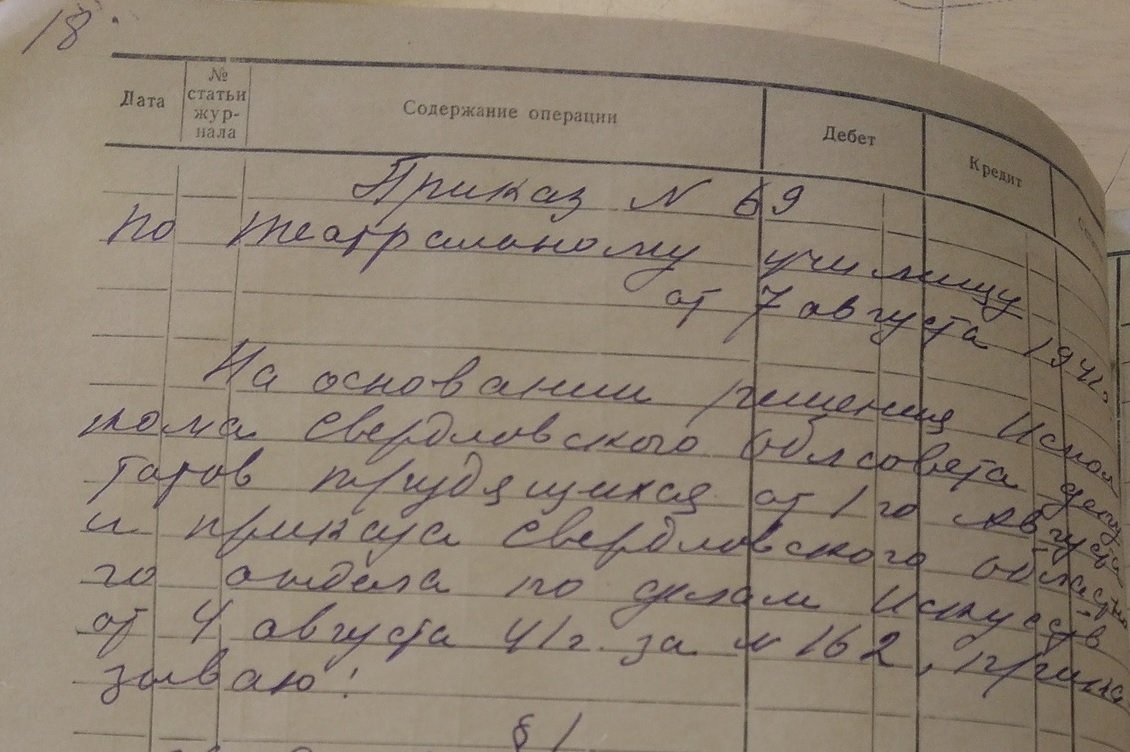 18.
Дата
№ статьи жур-нала
Содержание операции
Дебет
Кредит
Приказ N 69
по театральному училищу
от 7 августа 194
На основании решения Испол
кома Свердловского Облсовета депу
татов трудящихся от 1го августа
и приказа Свердловского областно
го отдела по делам Искусств
от 4 августа 41г. за N 162, прика
зываю!
§ 1